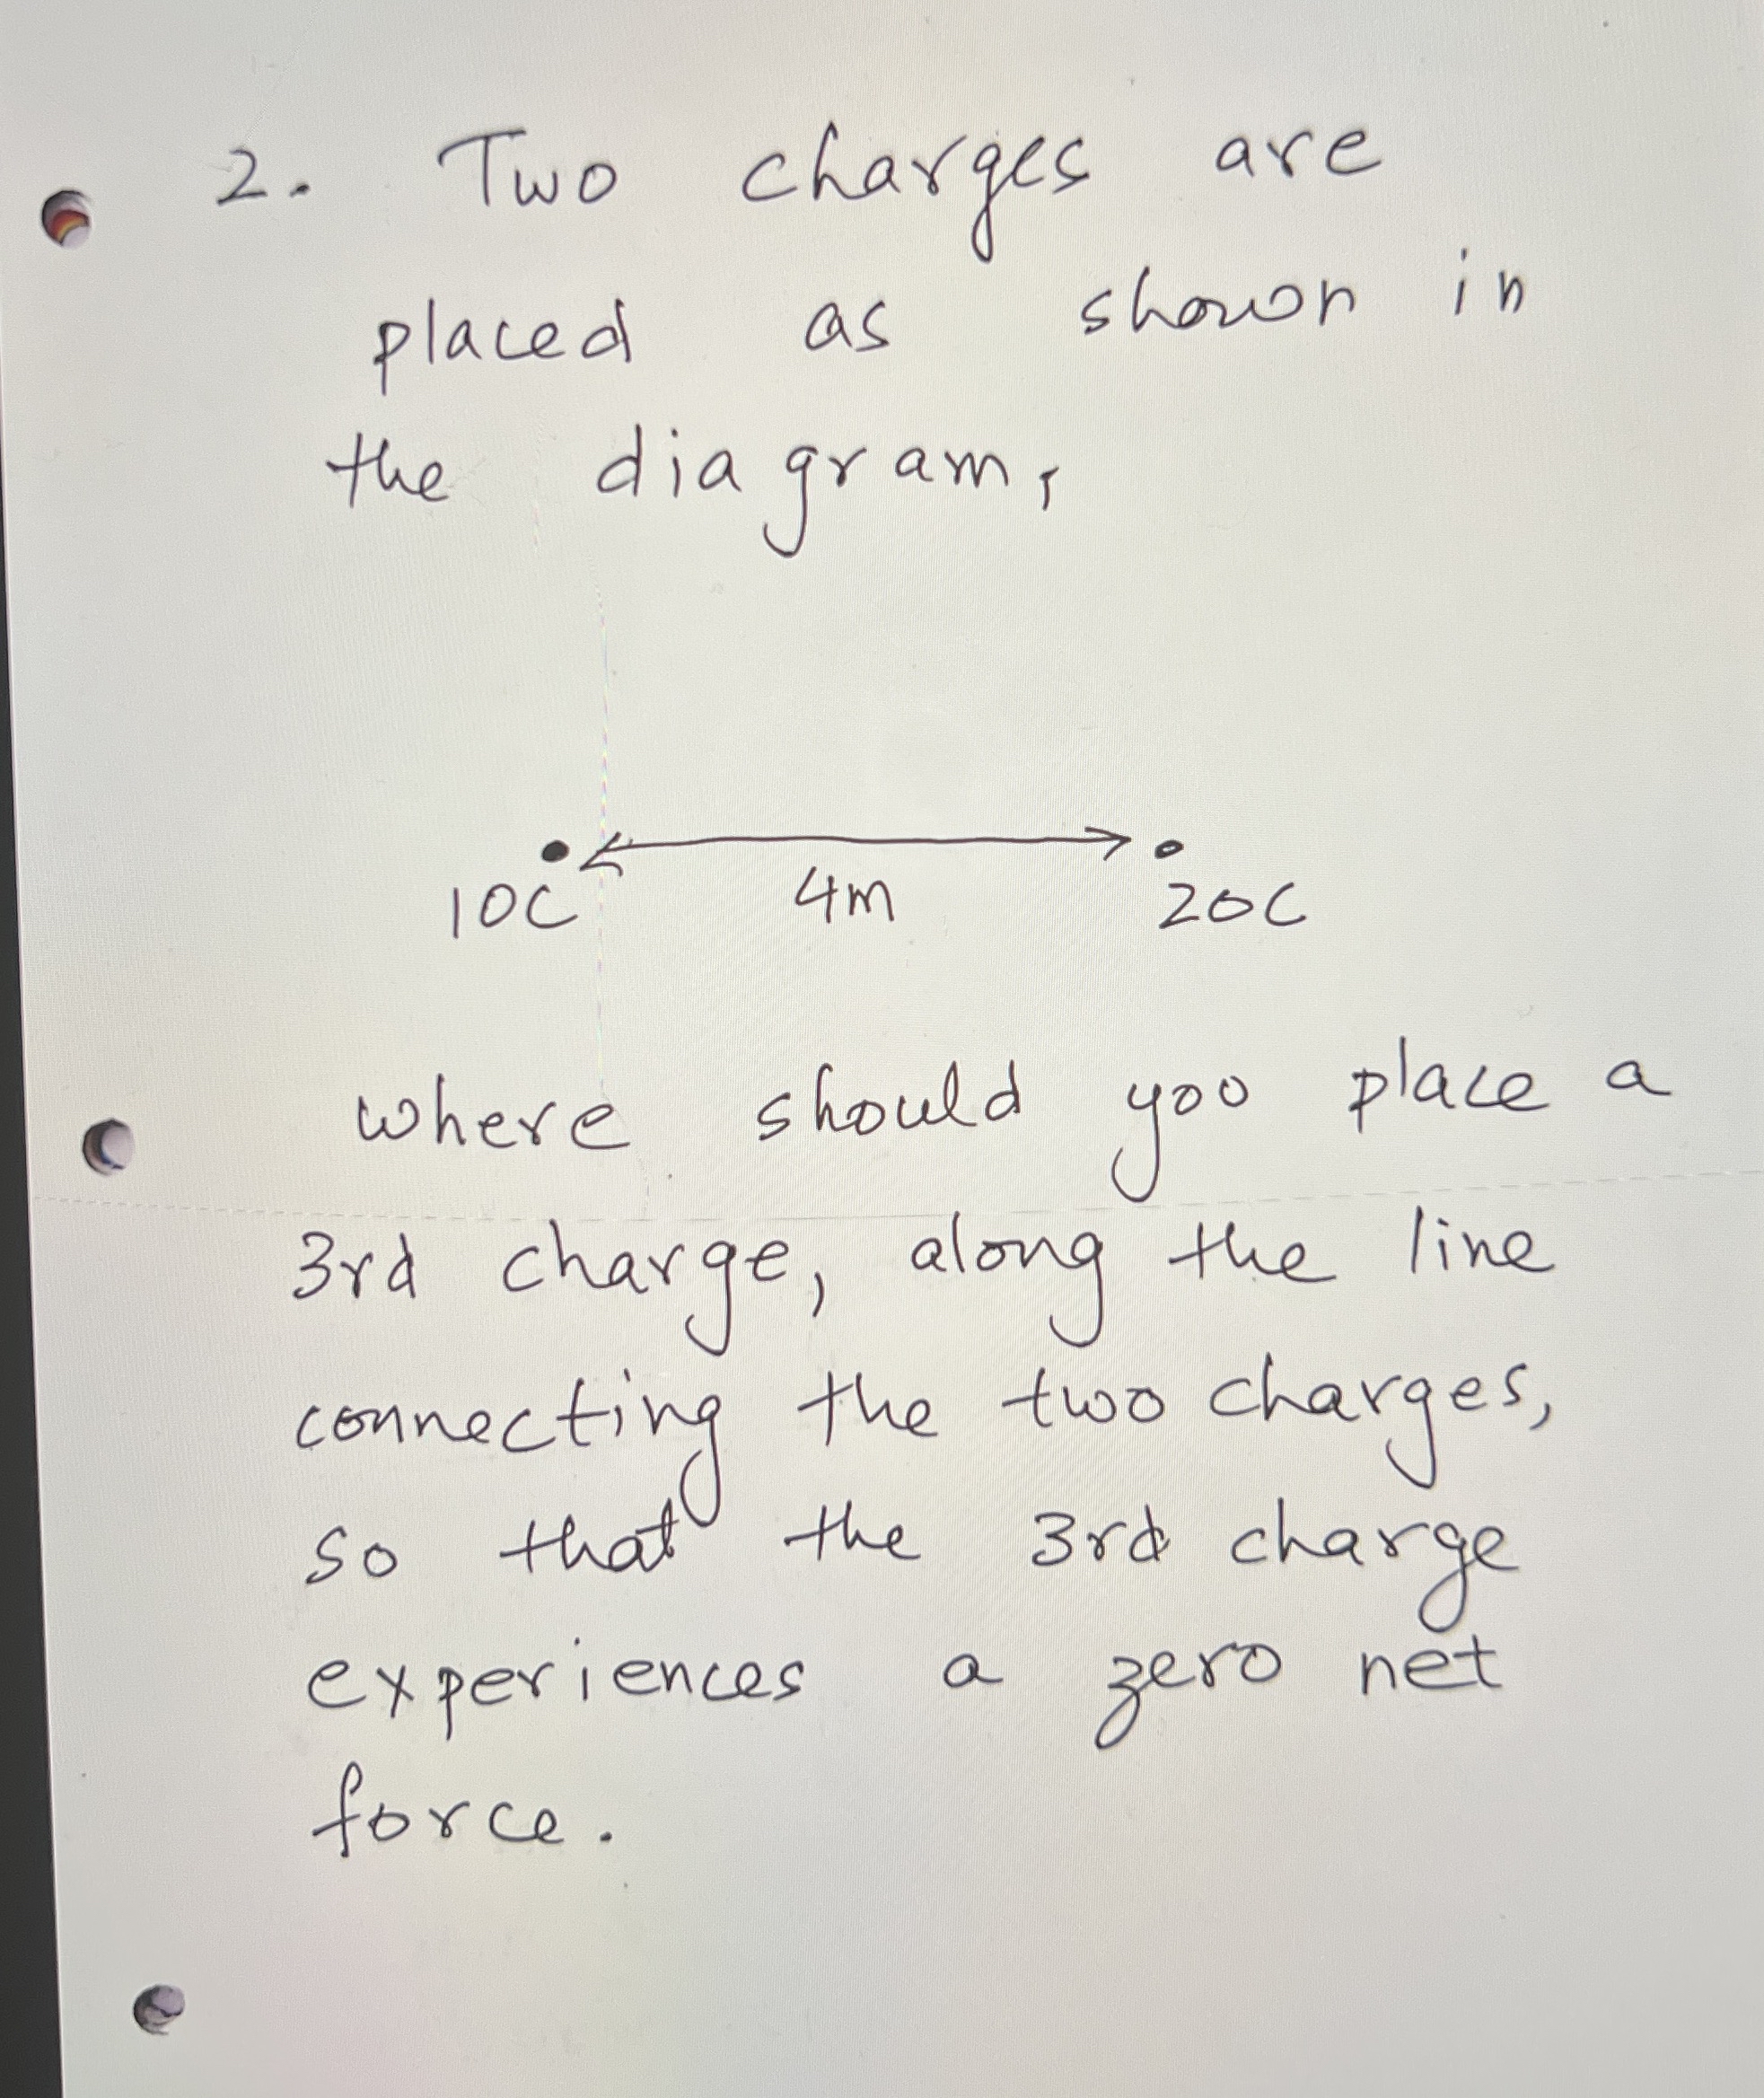 2. Two charges are
placed as shown in
the diagram,
10C 4m 20C
where should you place a
3rd charge, along the line
connecting the two charges,
so that the 3rd charge
experiences a zero net
force.